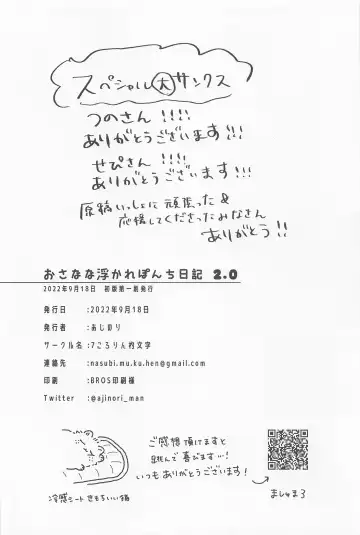 スペシャル大サンクス
つのさん!!!!
ありがとうございます!!!
せぴさん!!!!
ありがとうございます!!!
原稿いっしょに頑張った&
応援してくださったみなさん
ありがとう!!
おさなな浮かれぽんち日記 2.0
2022年9月18日 初版第一刷発行
発行日 :2022年9月18日
発行者 :あじのり
サークル名 :7ころりん肉文字
連絡先 :nasubi.mu.ku.hen@gmail.com
印刷 :BROS印刷様
Twitter :@ajinori_man
ご感想頂けますと
跳んで喜びます…!
いつもありがとうございます!
ましゅまろ
冷感シートきもちいい猫